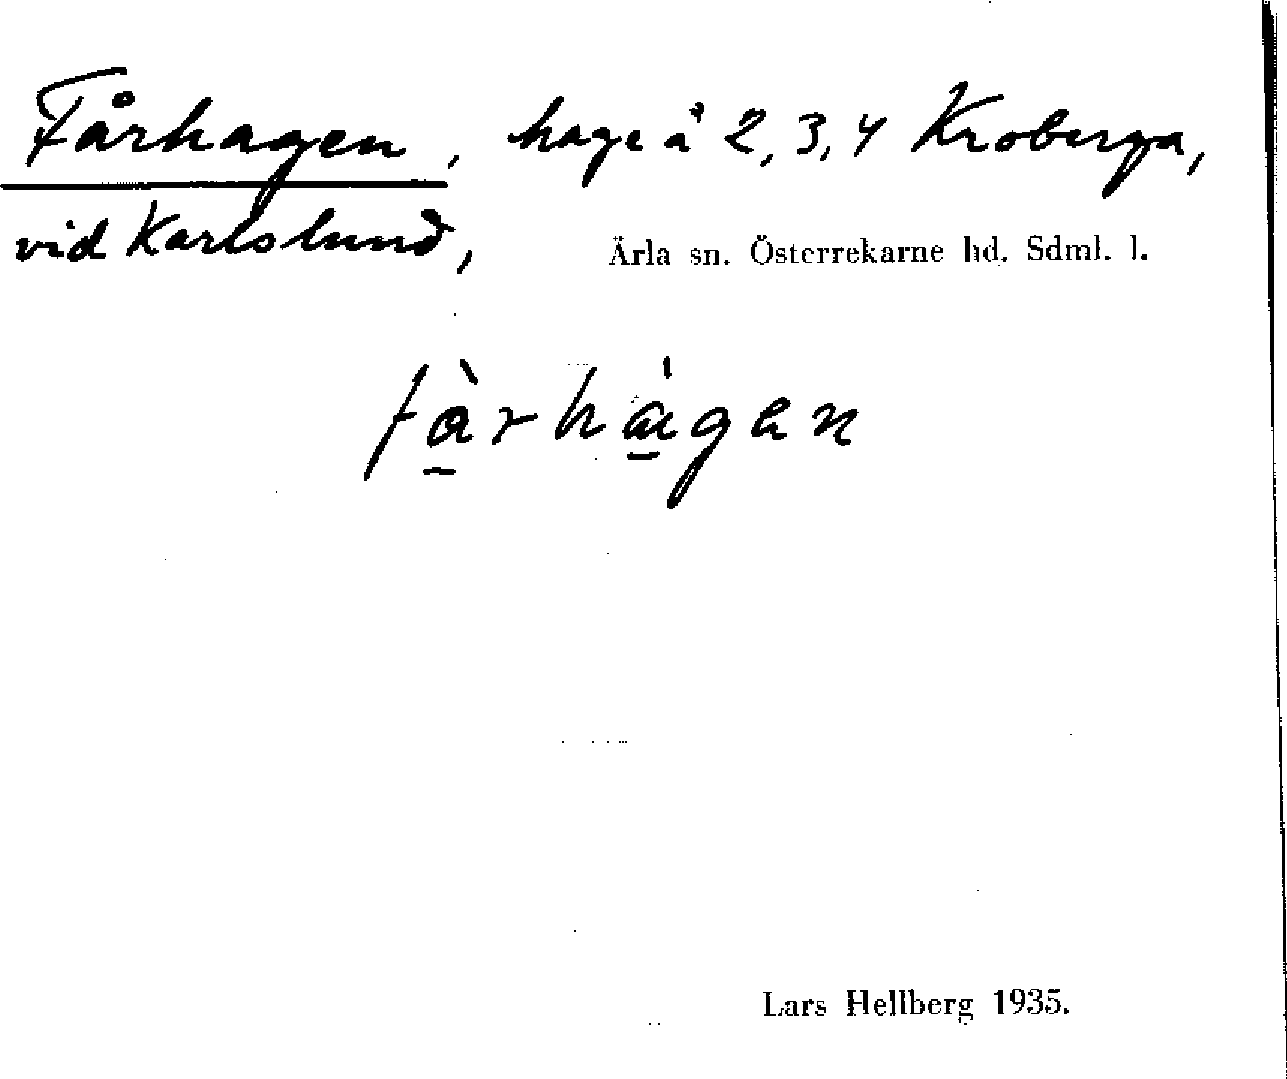 Fårhagen, hage å 2, 3, 4 Kroberga,
vid Karlslund, Ärla sn. Österrekarne hd. Sdml. l.
få̱̀rha̱̍gen
Lars Hellberg 1935.